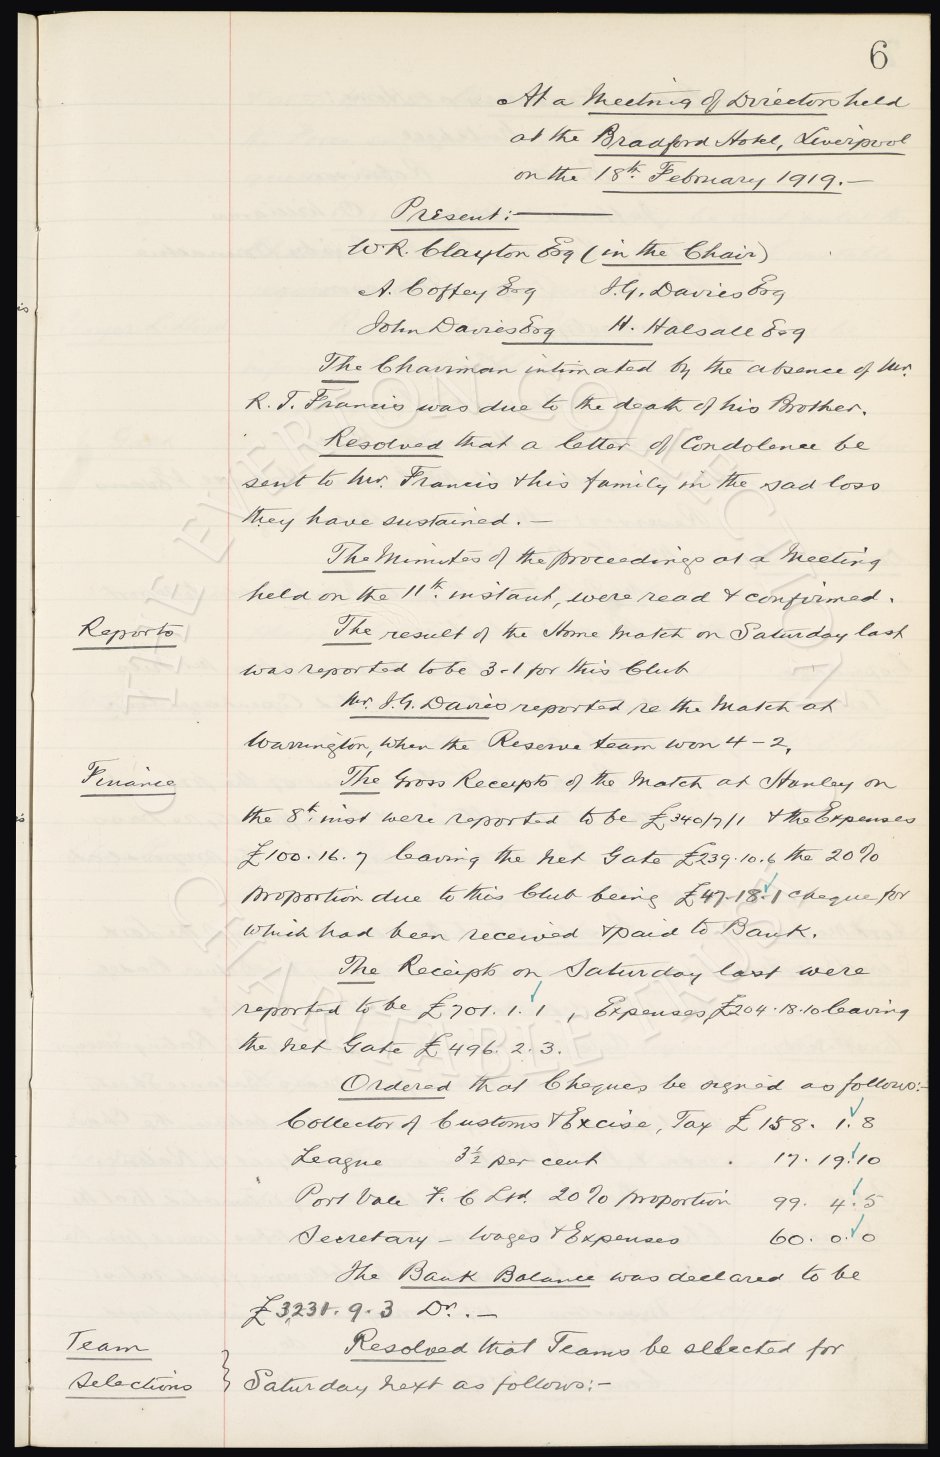 6
At a Meeting of Directors held
at the Bradford Hotel, Liverpool
on the 18th February 1919.—
Present:—
W.R. Clayton Esq (in the Chair)
A. Coffey Esq J.G. Davies Esq
John Davies Esq H. Halsall Esq
The Chairman intimated by the absence of Mr.
R.T. Francis was due to the death of his Brother.
Resolved that a letter of Condolence be
sent to Mr. Francis & his family in the sad loss
they have sustained.—
The Minutes of the proceedings at a Meeting
held on the 11th instant, were read & confirmed.
Reports
The result of the Home Match on Saturday last
was reported to be 3-1 for this Club
Mr. J.G. Davies reported re the Match at
Warrington, when the Reserve team won 4-2,
Finance
The Gross Receipts of the Match at Hanley on
the 8th inst were reported to be £340/7/1 & the Expenses
£100.16.7 leaving the net Gate £239.10.6 the 20%
proportion due to this Club being £47.18.1 cheque for
which had been received & paid to Bank.
The Receipts on Saturday last were
reported to be £701.1.1, Expenses £204.18.10 leaving
the net Gate £496.2.3.
Ordered that Cheques be signed as follows:—
Collector of Customs & Excise, Tax £158.1.8
League 3½ per cent . 17.19.10
Port Vale F.C Ltd 20% proportion 99.4.5
Secretary — Wages & Expenses 60.0.0
The Bank Balance was declared to be
£3231.9.3 Dr.—
Team
Selections
Resolved that Teams be selected for
Saturday next as follows:—